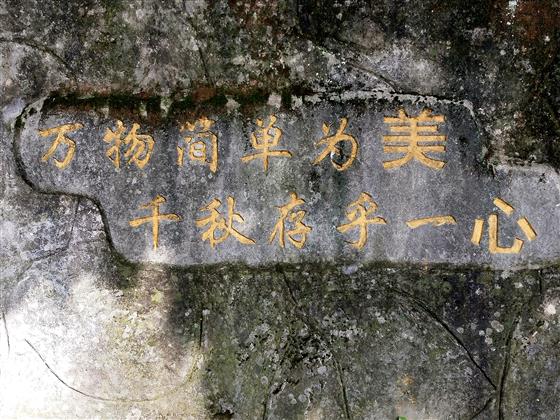 万物简单为美
千秋存乎一心